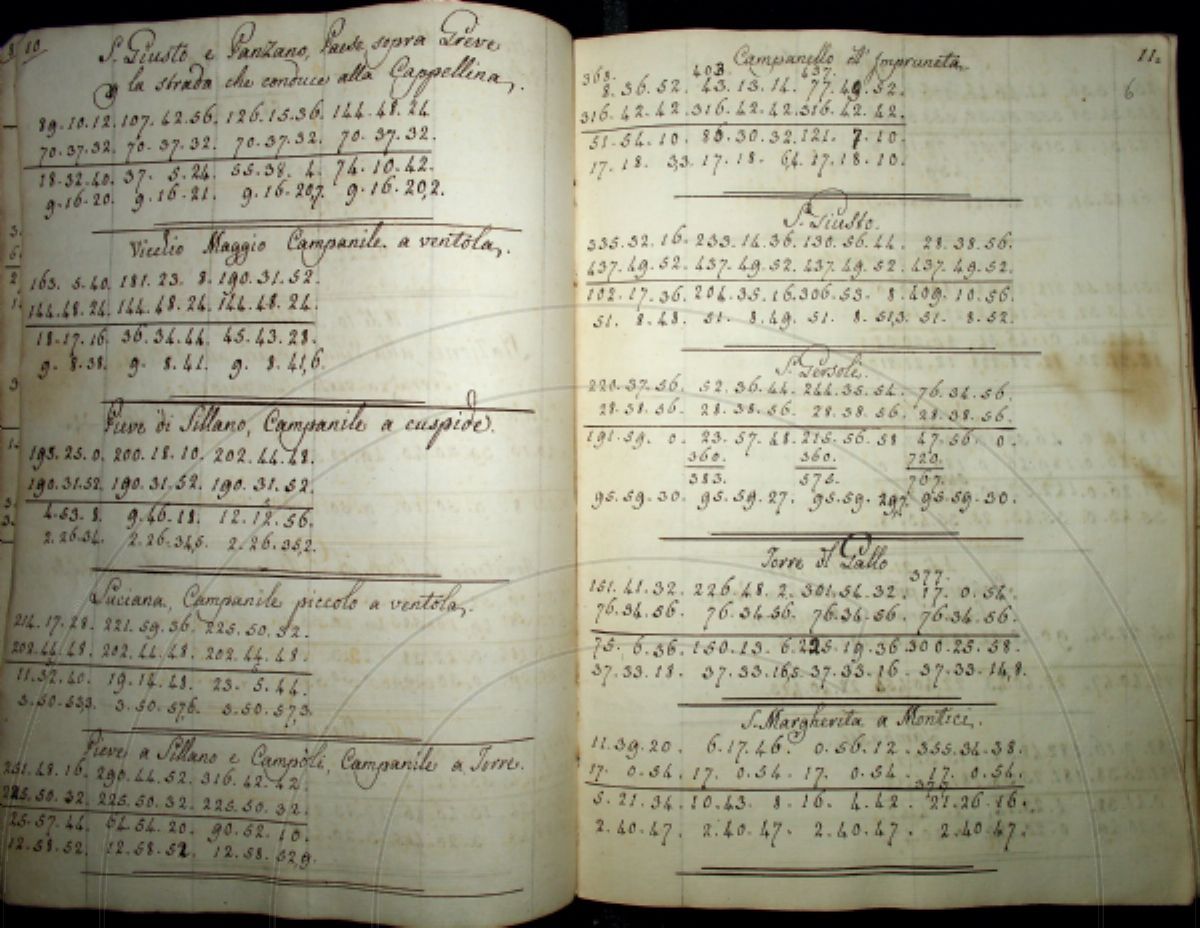 10
S. Giusto e Panzano, Paese sopra Greve
e la strada che conduce alla Cappellina.
89.10.12. 107.42.56. 126.15.36. 144.48.24
70.37.32. 70.37.32. 70.37.32. 70.37.32.
18.32.40. 37. 5.24. 55.38. 4. 74.10.42.
9.16.20. 9.16.21. 9.16.20,7. 9.16.20,2.
Viclio Maggio Campanile a ventola.
163. 5.40. 181.23. 8. 190.31.52.
144.48.24. 144.48.24. 144.48.24.
18.17.16. 36.34.44. 45.43.28.
9. 8.38. 9. 8.41. 9. 8.41,6.
Pieve di Sillano, Campanile a cuspide.
195.25.0. 200.18.10. 202.44.48.
190.31.52. 190.31.52. 190.31.52.
4.53.8. 9.46.18. 12.12.56.
2.26.34. 2.26.34,5. 2.26.35,2.
Luciana, Campanile piccolo a ventola.
214.17.28. 221.59.36. 225.50.32.
202.44.48. 202.44.48. 202.44.48.
11.32.40. 19.14.48. 23. 5.44.
3.50.53,3. 3.50.57,6. 3.50.57,3.
Pieve a Sillano e Campoli, Campanile a Torre.
251.48.16. 290.44.52. 316.42.42.
225.50.32. 225.50.32. 225.50.32.
25.57.44. 64.54.20. 90.52.10.
12.58.52. 12.58.52. 12.58.52,9.
11.
6
Campanello dell' Impruneta.
368. 403. 437.
8.36.52. 43.13.14. 77.49.52.
316.42.42. 316.42.42. 316.42.42.
51.54.10. 86.30.32. 121. 7.10.
17.18. 3,3. 17.18. 6,4. 17.18.10.
S. Giusto.
335.32.16. 233.14.36. 130.56.44. 28.38.56.
437.49.52. 437.49.52. 437.49.52. 437.49.52.
102.17.36. 204.35.16. 306.53. 8. 409.10.56.
51. 8.48. 51. 8.49. 51. 8.51,3. 51. 8.52.
S. Gersolè.
220.37.56. 52.36.44. 244.35.54. 76.34.56.
28.38.56. 28.38.56. 28.38.56. 28.38.56.
191.59. 0. 23.57.48. 215.56.58 47.56. 0.
360. 360. 720.
383. 575. 767.
95.59.30. 95.59.27. 95.59.29,7. 95.59.30.
Torre del Gallo
377.
151.41.32. 226.48.2. 301.54.32. 17. 0.54.
76.34.56. 76.34.56. 76.34.56. 76.34.56.
75. 6.36. 150.13. 6. 225.19.36 300.25.58.
37.33.18. 37.33.16,5. 37.33.16 37.33.14,8.
S. Margherita a Montici.
11.39.20. 6.17.46. 0.56.12. 355.34.38.
17. 0.54. 17. 0.54. 17. 0.54. 17. 0.54.
375
5.21.34. 10.43. 8. 16. 4.42. 21.26.16.
2.40.47. 2.40.47. 2.40.47. 2.40.47.